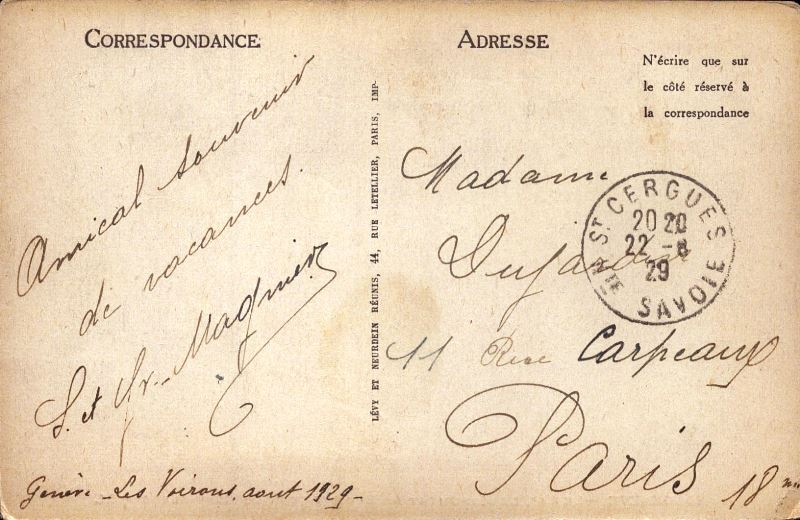 CORRESPONDANCE
ADRESSE
N'écrire que sur
le côté réservé à
la correspondance
Amical souvenir
de vacances.
S. et Fr. Magnier
Genève - Les Voirons, aout 1929 -
LÉVY ET NEURDEIN RÉUNIS, 44, RUE LETELLIER, PARIS, IMP.
Madame
Dujardin
11 Rue Carpeaux
Paris 18me
ST CERGUES
20 20
22 - 8
29
HTE SAVOIE